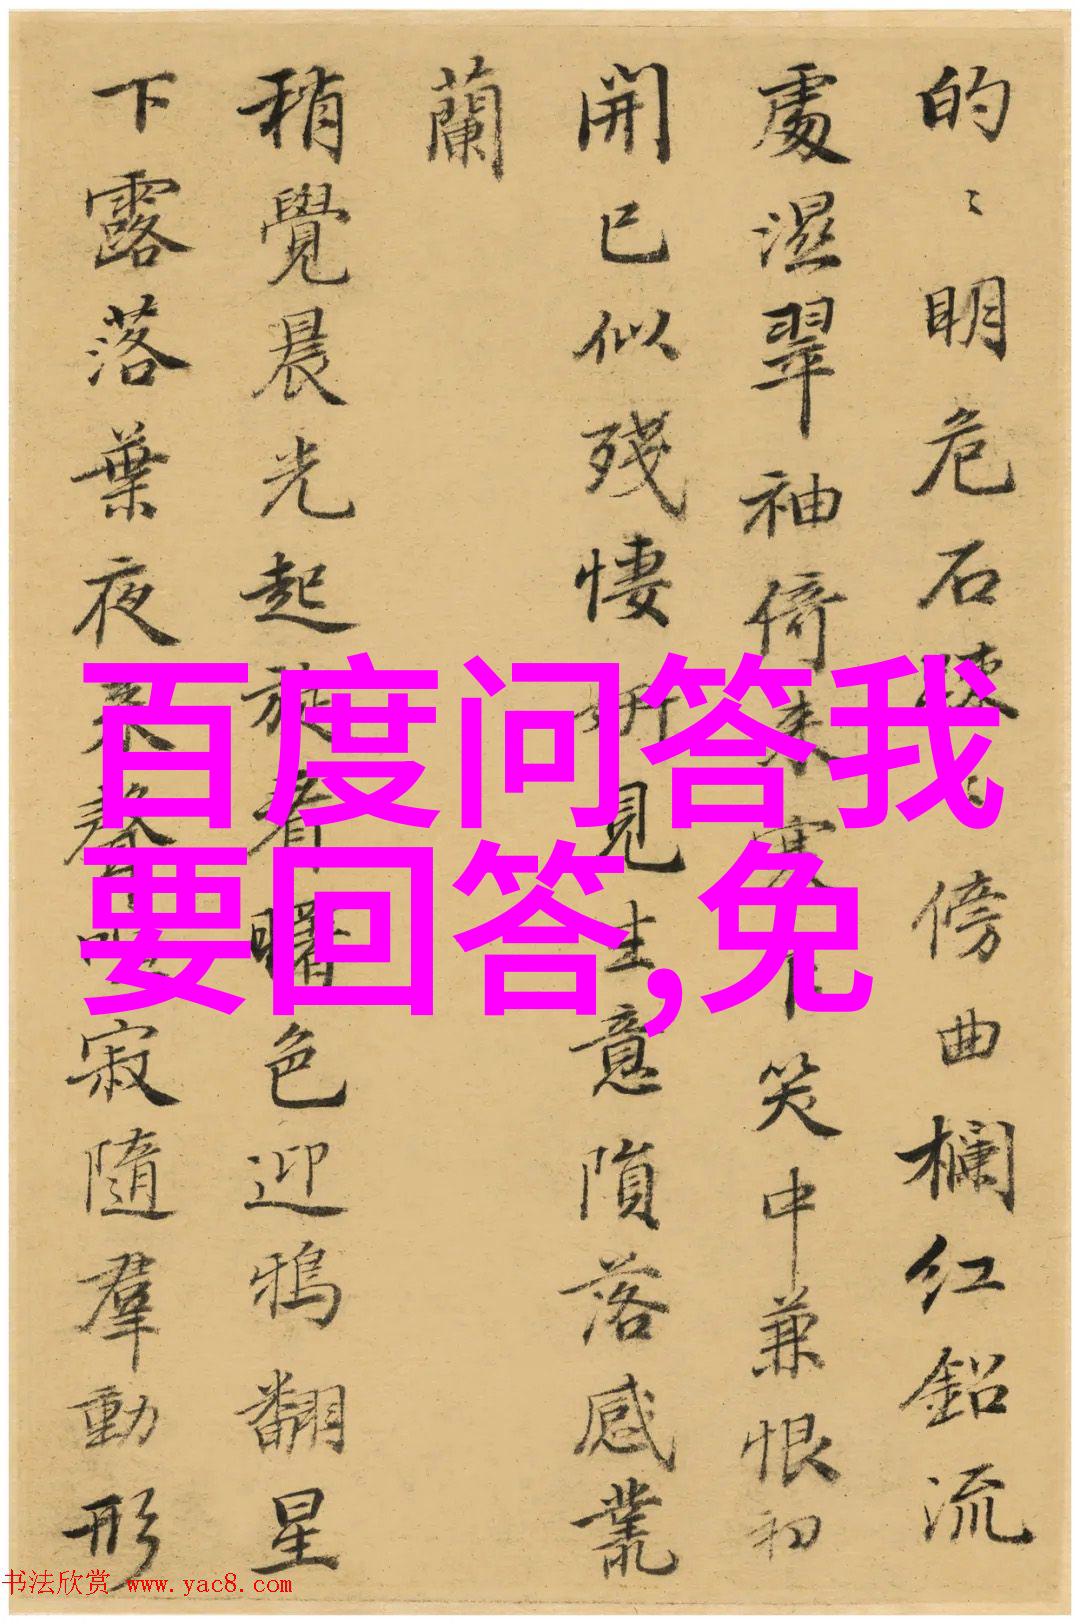 的〻明危石〻傍曲欄红鉛流
處濕翠袖倚来寒笑中兼恨初
開已似残悽妍見生意隕落感叢
蘭
稍覺晨光起旋看曙色迎鴉翻星
下露落葉夜来聲寂隨羣動形
百度问答我
要回答,免
书法欣赏 www.yac8.com